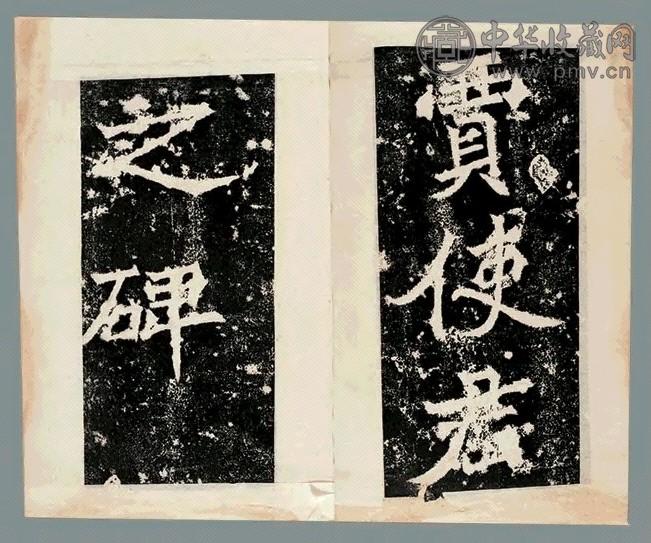 賈使君
之碑
中华收藏网
www.pmv.cn